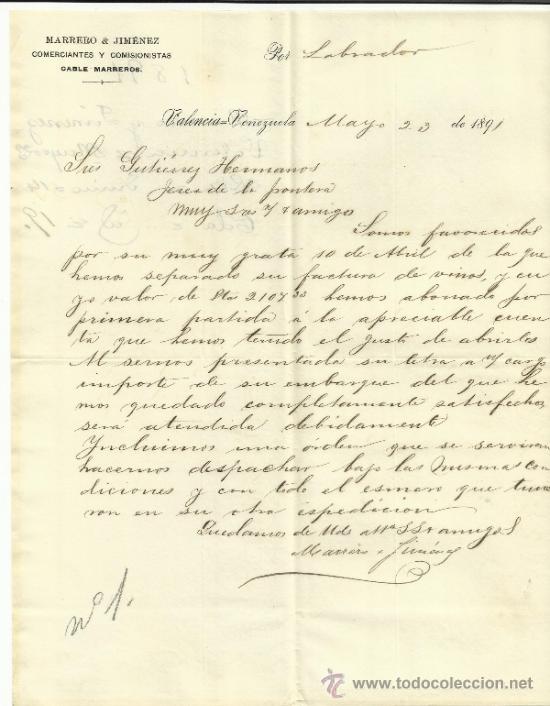 MARRERO & JIMÉNEZ
COMERCIANTES Y COMISIONISTAS
CABLE MARREROS.
Por Labrador
Valencia=Venezuela Mayo 23 de 1891
Sres Gutiérrez Hermanos
Jerez de la frontera
Muy Srs y amigos
Somos favorecidos
por su muy grata 10 de Abril de la que
hemos separado su factura de vinos, y cu
yo valor de Pts 2107 hemos abonado por
primera partida á la apreciable cuen
ta que hemos tenido el gusto de abrirles
Al sernos presentada su letra a cargo
importe de su embarque del que he
mos quedado completamente satisfechos
será atendida debidamente
Yncluimos una órden que se serviran
hacernos despachar bajo las mismas con
diciones y con todo el esmero que tuvie
ron en su otra espedicion
Quedamos de Uds amigos
Marrero & Jiménez
nº 1.
todocoleccion
www.todocoleccion.net